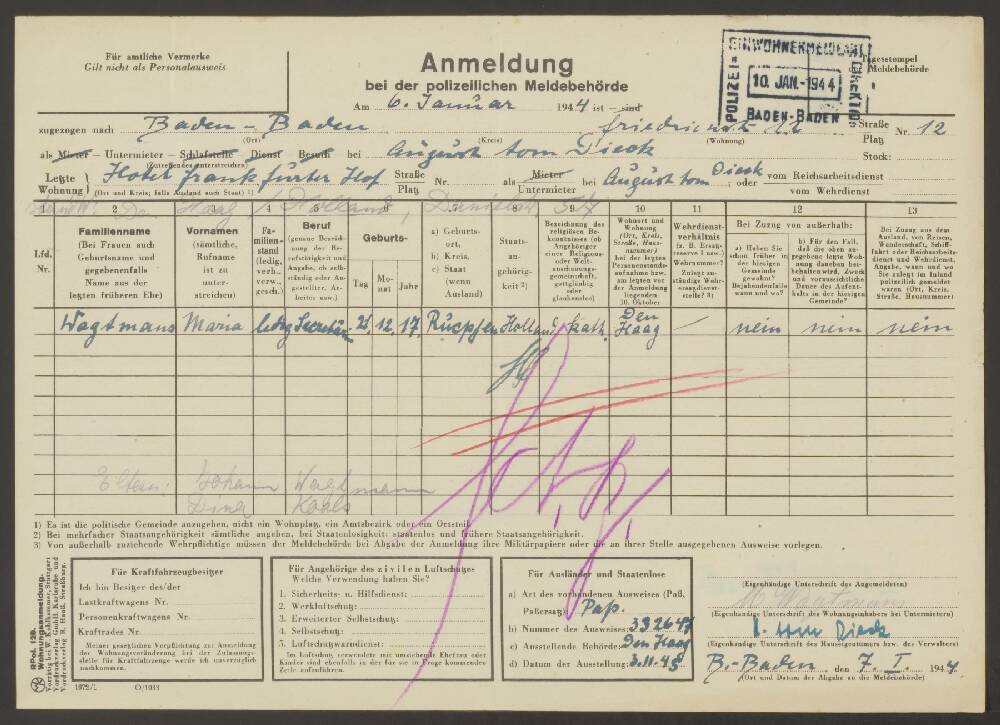 Für amtliche Vermerke
Gilt nicht als Personalausweis
Anmeldung
bei der polizeilichen Meldebehörde
EINWOHNERMELDEAMT
POLIZEI-
DIREKTION
10. JAN. 1944
BADEN-BADEN
Tagesstempel
der Meldebehörde
Am 6. Januar 1944 ist – sind
zugezogen nach Baden-Baden Straße Nr. 12
(Ort) (Kreis) (Wohnung) Platz
als Mieter – Untermieter – Schlafstelle – Dienst – Besuch – bei August tom Dieck Stock:
(Zutreffendes unterstreichen)
Letzte Wohnung } Hotel Frankfurter Hof Straße Platz Nr. als Mieter Untermieter bei August tom Dieck, oder vom Reichsarbeitsdienst vom Wehrdienst
(Ort und Kreis; falls Ausland auch Staat) 1)
Haag / Holland,
1 2 3 4 5 6 7 8 9 10 11 12 13
Lfd. Nr.
Familienname (Bei Frauen auch Geburtsname und gegebenenfalls Name aus der letzten früheren Ehe)
Vornamen (sämtliche, Rufname ist zu unterstreichen)
Familienstand (ledig, verh., verw., gesch.)
Beruf (genaue Bezeichnung der Berufstätigkeit und Angabe, ob selbständig oder Angestellter, Arbeiter usw.)
Geburts- Tag Monat Jahr
a) Geburtsort, b) Kreis, c) Staat (wenn Ausland)
Staatsangehörigkeit 2)
Bezeichnung des religiösen Bekenntnisses (ob Angehöriger einer Religions- oder Weltanschauungsgemeinschaft, gottgläubig oder glaubenslos)
Wohnort und Wohnung (Ort, Kreis, Straße, Hausnummer) bei der letzten Personenstandsaufnahme bzw. am letzten vor der Anmeldung liegenden 10. Oktober
Wehrdienstverhältnis (z. B. Ersatzreserve I usw.) Wehrnummer? Zuletzt zuständige Wehrersatzdienststelle? 3)
Bei Zuzug von außerhalb:
a) Haben Sie schon früher in der hiesigen Gemeinde gewohnt? Bejahendenfalls wann und wo?
b) Für den Fall, daß die oben angegebene letzte Wohnung daneben beibehalten wird, Zweck und voraussichtliche Dauer des Aufenthalts in der hiesigen Gemeinde?
Bei Zuzug aus dem Ausland, von Reisen, Wanderschaft, Schifffahrt oder Reichsarbeitsdienst und Wehrdienst, Angabe, wann und wo Sie zuletzt im Inland polizeilich gemeldet waren (Ort, Kreis, Straße, Hausnummer)
Wagtmans Maria ledig Sekretärin 21. 12. 17. Rucpfen Holland kath. Den Haag – nein nein nein
Eltern: Johann Wagtmann
Dina
1) Es ist die politische Gemeinde anzugeben, nicht ein Wohnplatz, ein Amtsbezirk oder ein Ortsteil.
2) Bei mehrfacher Staatsangehörigkeit sämtliche angeben, bei Staatenlosigkeit: staatenlos und frühere Staatsangehörigkeit.
3) Von außerhalb zuziehende Wehrpflichtige müssen der Meldebehörde bei Abgabe der Anmeldung ihre Militärpapiere oder die an ihrer Stelle ausgegebenen Ausweise vorlegen.
Pol. 12B. Wohnungsanmeldung.
Vorrätig bei W. Kohlhammer, Stuttgart
Vordruckverlag GmbH. Karlsruhe und
Vordruckverlag H. Hauß, Straßburg.
Für Kraftfahrzeugbesitzer
Ich bin Besitzer des/der
Lastkraftwagens Nr.
Personenkraftwagens Nr.
Kraftrades Nr.
Meiner gesetzlichen Verpflichtung zur Anmeldung der Wohnungsveränderung bei der Zulassungsstelle für Kraftfahrzeuge werde ich unverzüglich nachkommen.
Für Angehörige des zivilen Luftschutzes
Welche Verwendung haben Sie?
1. Sicherheits- u. Hilfsdienst:
2. Werkluftschutz:
3. Erweiterter Selbstschutz:
4. Selbstschutz:
5. Luftschutzwarndienst:
Im Luftschutz verwendete mit umziehende Ehefrau oder Kinder sind ebenfalls in der für sie in Frage kommenden Zeile aufzuführen.
Für Ausländer und Staatenlose
a) Art des vorhandenen Ausweises (Paß, Paßersatz): Paß.
b) Nummer des Ausweises:
c) Ausstellende Behörde: Den Haag
d) Datum der Ausstellung:
(Eigenhändige Unterschrift des Angemeldeten)
(Eigenhändige Unterschrift des Wohnungsinhabers bei Untermietern)
tom Dieck
(Eigenhändige Unterschrift des Hauseigentümers bzw. des Verwalters)
B.-Baden, den 7. I. 1944.
(Ort und Datum der Abgabe an die Meldebehörde)
1872/1 O/1033